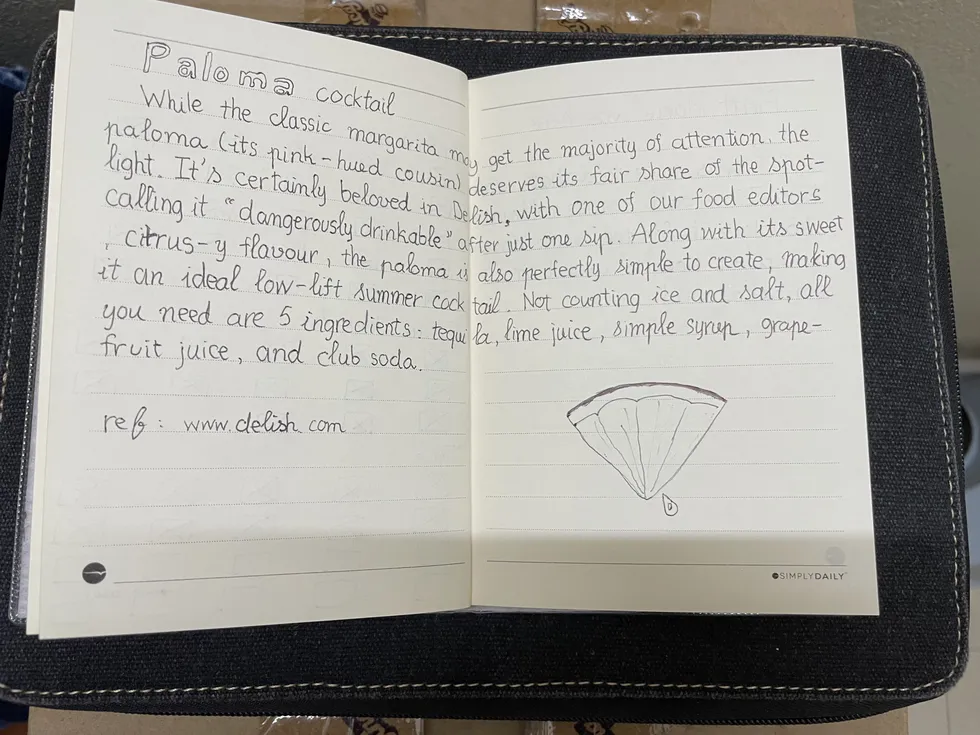 Paloma cocktail
While the classic margarita may get the majority of attention, the
paloma (its pink-hued cousin) deserves its fair share of the spot-
light. It's certainly beloved in Delish, with one of our food editors
calling it "dangerously drinkable" after just one sip. Along with its sweet
, citrus-y flavour, the paloma is also perfectly simple to create, making
it an ideal low-lift summer cocktail. Not counting ice and salt, all
you need are 5 ingredients: tequila, lime juice, simple syrup, grape-
fruit juice, and club soda.
ref: www.delish.com
SIMPLYDAILY